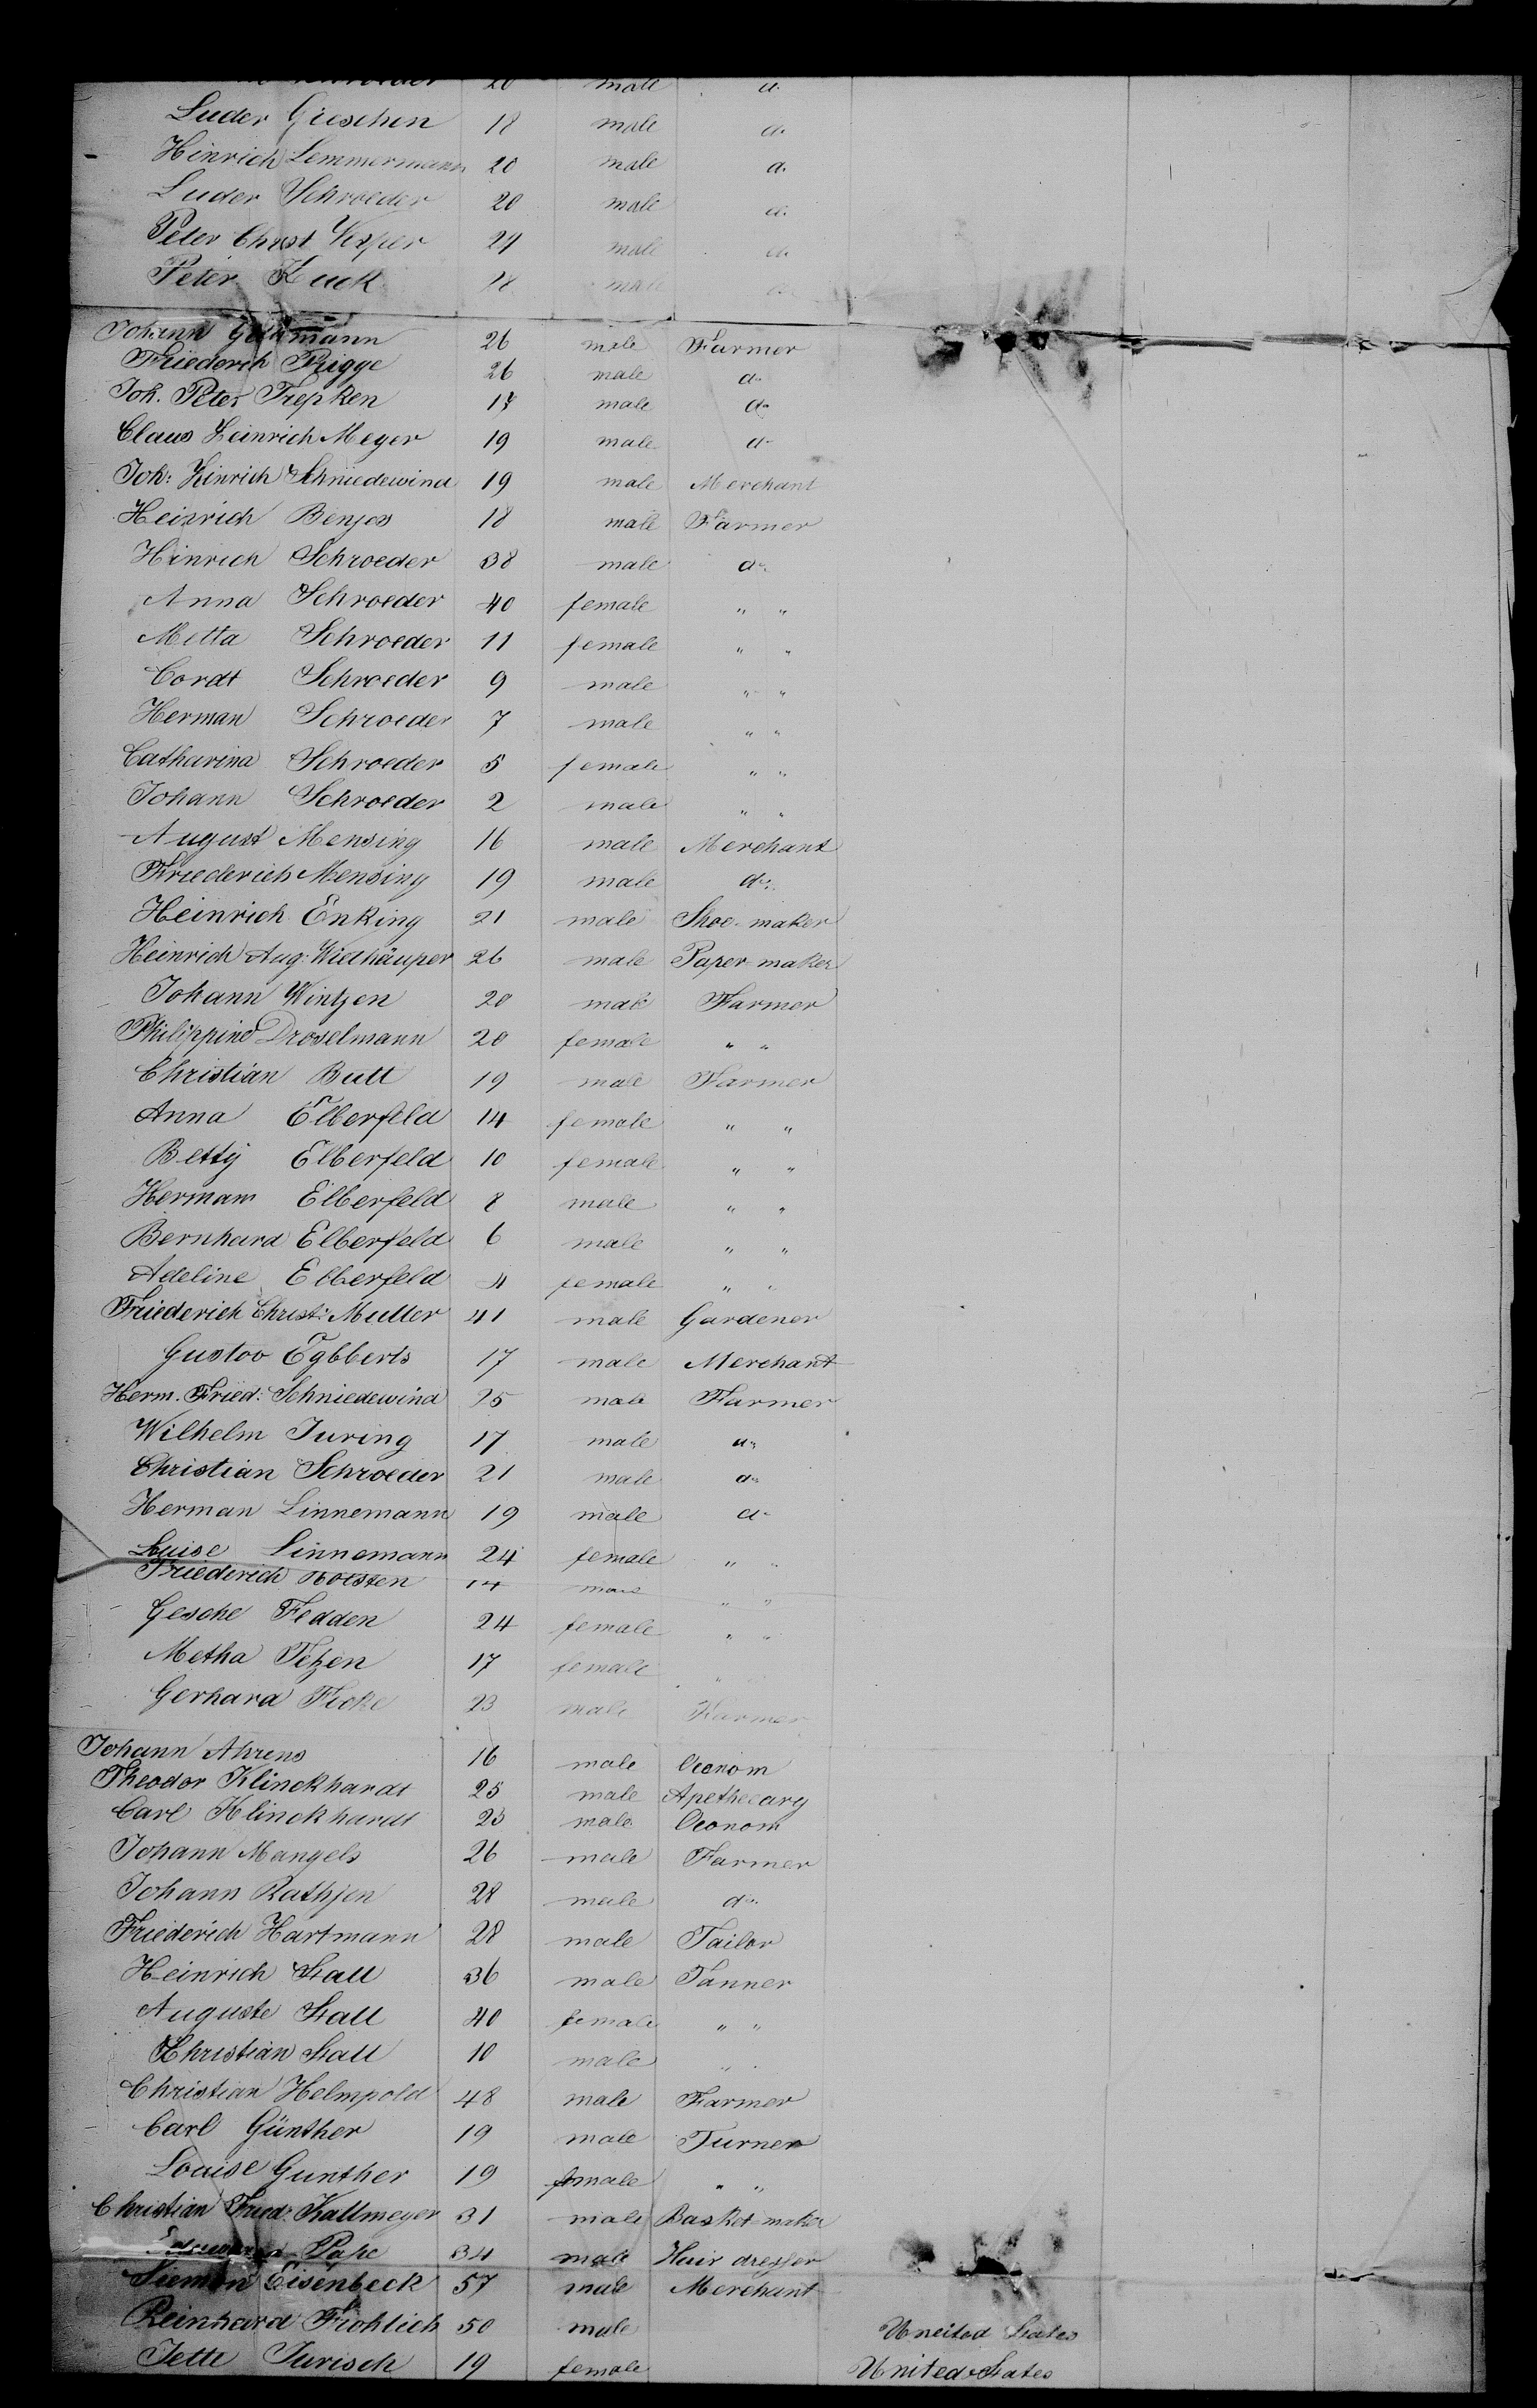 Schroeder 20 male do
Luder Gieschen 18 male do
Hinrich Lemmermann 20 male do
Luder Schroeder 20 male do
Peter Christ Vesper 29 male do
Peter Kuck 18 male do
Johann 26 male Farmer
Friederich Prigge 26 male do
Joh. Peter Trepken 17 male do
Claus Heinrich Meyer 19 male do
Joh: Hinrich Schniedewind 19 male Merchant
Heinrich Benjes 18 male Farmer
Hinrich Schroeder 38 male do
Anna Schroeder 40 female " "
Metta Schroeder 11 female " "
Cordt Schroeder 9 male " "
Herman Schroeder 7 male " "
Catharina Schroeder 5 female " "
Johann Schroeder 2 male " "
August Mensing 16 male Merchant
Friederich Mensing 19 male do
Heinrich Enking 21 male Shoe-maker
Heinrich Aug: Wiethäuper 26 male Paper-maker
Johann Wintjen 20 male Farmer
Philippine Droselmann 20 female " "
Christian Butt 19 male Farmer
Anna Elberfeld 14 female " "
Betty Elberfeld 10 female " "
Hermann Elberfeld 8 male " "
Bernhard Elberfeld 6 male " "
Adeline Elberfeld 4 female " "
Friederich Christ: Muller 41 male Gardener
Gustav Egbberts 17 male Merchant
Herm. Fried: Schniedewind 25 male Farmer
Wilhelm Juring 17 male do
Christian Schroeder 21 male do
Herman Linnemann 19 male do
Luise Linnemann 24 female " "
Friederich Holsten 14 male " "
Gesche Fedden 24 female " "
Metha Tetzen 17 female "
Gerhard Ficke 23 male Farmer
Johann Ahrens 16 male Oeconom
Theodor Klinckhardt 25 male Apethecary
Carl Klinckhardt 23 male Oeonom
Johann Mangels 26 male Farmer
Johann Rathjen 28 male do
Friederich Hartmann 28 male Tailor
Heinrich Stall 36 male Tanner
Auguste Stall 40 female " "
Christian Stall 10 male " "
Christian Helmpold 48 male Farmer
Carl Günther 19 male Turner
Louise Gunther 19 female " "
Christian Fried: Kallmeyer 31 male Basket-maker
Pape 34 male Hair dresser
Siemon Eisenbeck 57 male Merchant
Reinhard Frohlich 50 male Uneited States
Jette Jurisch 19 female United States